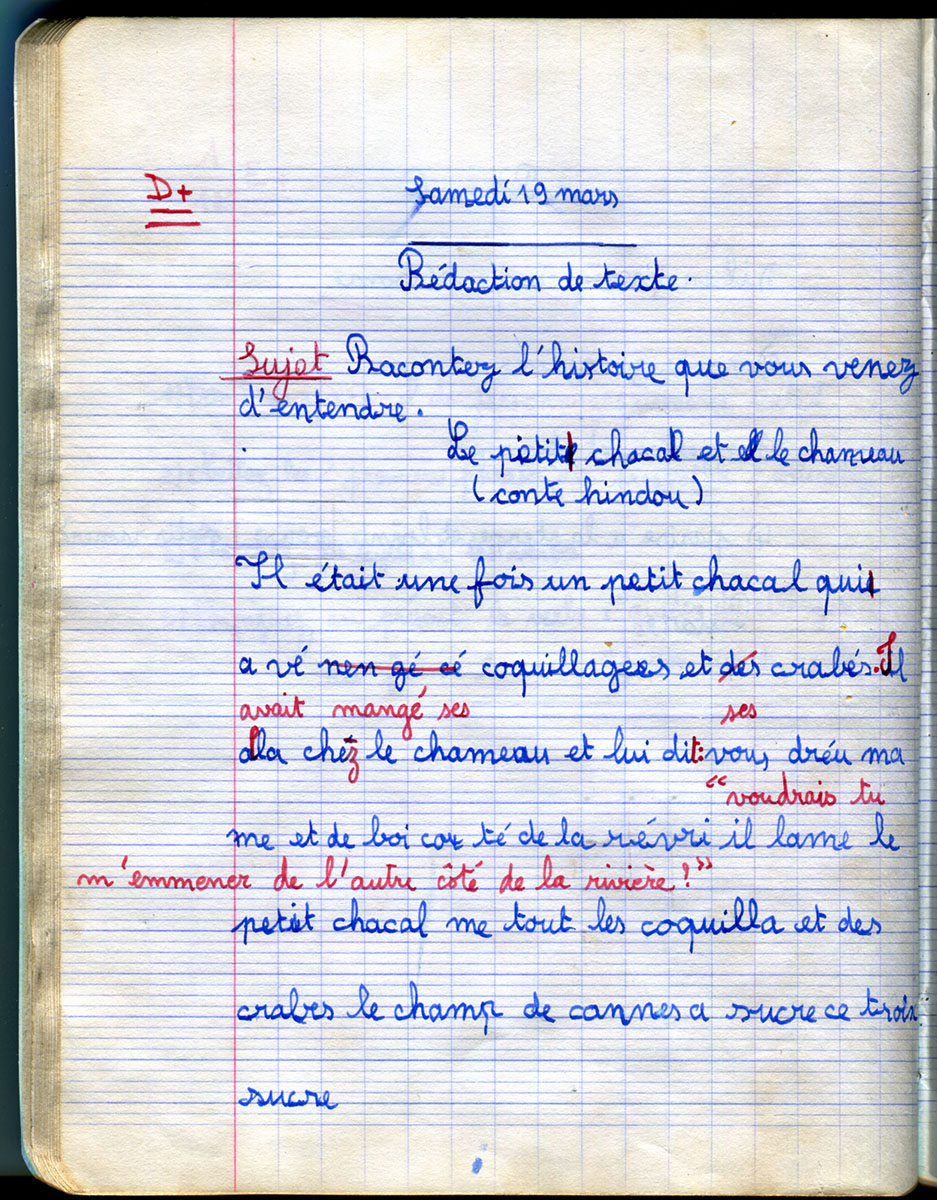 D+
Samedi 19 mars
Rédaction de texte.
Sujet Racontez l'histoire que vous venez
d'entendre.
Le petit chacal et le chameau
(conte hindou)
Il était une fois un petit chacal qui
a vé nen gé cé coquillagees et des crabés. Il
avait mangé ses ses
alla chez le chameau et lui dit: vous, dréu ma
"voudrais tu
me et de boi cou té de la révri il lame le
m'emmener de l'autre côté de la rivière?"
petit chacal me tout les coquilla et des
crabes le champ de cannes a sucre ce trois
sucre